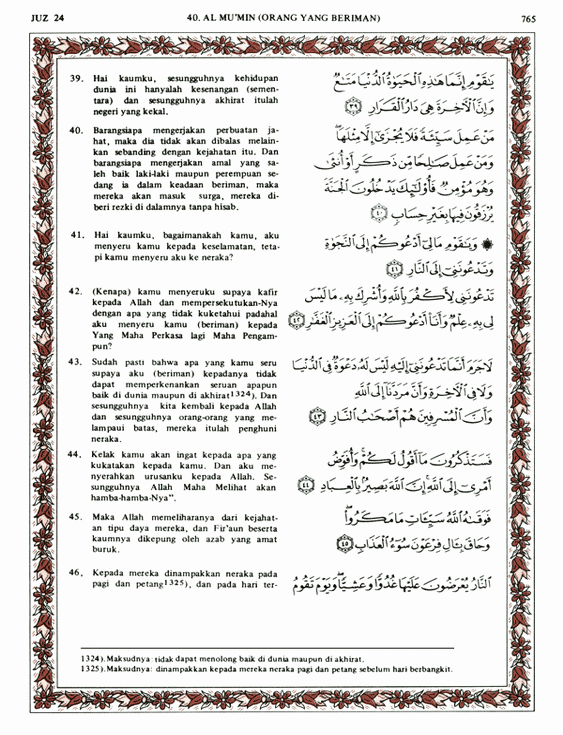 JUZ 24
40. AL MU'MIN (ORANG YANG BERIMAN)
765
39. Hai kaumku, sesungguhnya kehidupan
dunia ini hanyalah kesenangan (semen-
tara) dan sesungguhnya akhirat itulah
negeri yang kekal.
يَـٰقَوْمِ إِنَّمَا هَـٰذِهِ ٱلْحَيَوٰةُ ٱلدُّنْيَا مَتَـٰعٌ
وَإِنَّ ٱلْـَٔاخِرَةَ هِىَ دَارُ ٱلْقَرَارِ ٣٩
40. Barangsiapa mengerjakan perbuatan ja-
hat, maka dia tidak akan dibalas melain-
kan sebanding dengan kejahatan itu. Dan
barangsiapa mengerjakan amal yang sa-
leh baik laki-laki maupun perempuan se-
dang ia dalam keadaan beriman, maka
mereka akan masuk surga, mereka di-
beri rezki di dalamnya tanpa hisab.
مَنْ عَمِلَ سَيِّئَةً فَلَا يُجْزَىٰٓ إِلَّا مِثْلَهَا
وَمَنْ عَمِلَ صَـٰلِحًا مِّن ذَكَرٍ أَوْ أُنثَىٰ
وَهُوَ مُؤْمِنٌ فَأُو۟لَـٰٓئِكَ يَدْخُلُونَ ٱلْجَنَّةَ
يُرْزَقُونَ فِيهَا بِغَيْرِ حِسَابٍ ٤٠
41. Hai kaumku, bagaimanakah kamu, aku
menyeru kamu kepada keselamatan, teta-
pi kamu menyeru aku ke neraka?
۞ وَيَـٰقَوْمِ مَا لِىٓ أَدْعُوكُمْ إِلَى ٱلنَّجَوٰةِ
وَتَدْعُونَنِىٓ إِلَى ٱلنَّارِ ٤١
42. (Kenapa) kamu menyeruku supaya kafir
kepada Allah dan mempersekutukan-Nya
dengan apa yang tidak kuketahui padahal
aku menyeru kamu (beriman) kepada
Yang Maha Perkasa lagi Maha Pengam-
pun?
تَدْعُونَنِى لِأَكْفُرَ بِٱللَّهِ وَأُشْرِكَ بِهِۦ مَا لَيْسَ
لِى بِهِۦ عِلْمٌ وَأَنَا۠ أَدْعُوكُمْ إِلَى ٱلْعَزِيزِ ٱلْغَفَّـٰرِ ٤٢
43. Sudah pasti bahwa apa yang kamu seru
supaya aku (beriman) kepadanya tidak
dapat memperkenankan seruan apapun
baik di dunia maupun di akhirat1324). Dan
sesungguhnya kita kembali kepada Allah
dan sesungguhnya orang-orang yang me-
lampaui batas, mereka itulah penghuni
neraka.
لَا جَرَمَ أَنَّمَا تَدْعُونَنِىٓ إِلَيْهِ لَيْسَ لَهُۥ دَعْوَةٌ فِى ٱلدُّنْيَا
وَلَا فِى ٱلْـَٔاخِرَةِ وَأَنَّ مَرَدَّنَآ إِلَى ٱللَّهِ
وَأَنَّ ٱلْمُسْرِفِينَ هُمْ أَصْحَـٰبُ ٱلنَّارِ ٤٣
44. Kelak kamu akan ingat kepada apa yang
kukatakan kepada kamu. Dan aku me-
nyerahkan urusanku kepada Allah. Se-
sungguhnya Allah Maha Melihat akan
hamba-hamba-Nya".
فَسَتَذْكُرُونَ مَآ أَقُولُ لَكُمْ وَأُفَوِّضُ
أَمْرِىٓ إِلَى ٱللَّهِ إِنَّ ٱللَّهَ بَصِيرٌۢ بِٱلْعِبَادِ ٤٤
45. Maka Allah memeliharanya dari kejahat-
an tipu daya mereka, dan Fir'aun beserta
kaumnya dikepung oleh azab yang amat
buruk.
فَوَقَىٰهُ ٱللَّهُ سَيِّـَٔاتِ مَا مَكَرُوا۟
وَحَاقَ بِـَٔالِ فِرْعَوْنَ سُوٓءُ ٱلْعَذَابِ ٤٥
46. Kepada mereka dinampakkan neraka pada
pagi dan petang1325), dan pada hari ter-
ٱلنَّارُ يُعْرَضُونَ عَلَيْهَا غُدُوًّا وَعَشِيًّا وَيَوْمَ تَقُومُ
1324). Maksudnya: tidak dapat menolong baik di dunia maupun di akhirat.
1325). Maksudnya: dinampakkan kepada mereka neraka pagi dan petang sebelum hari berbangkit.